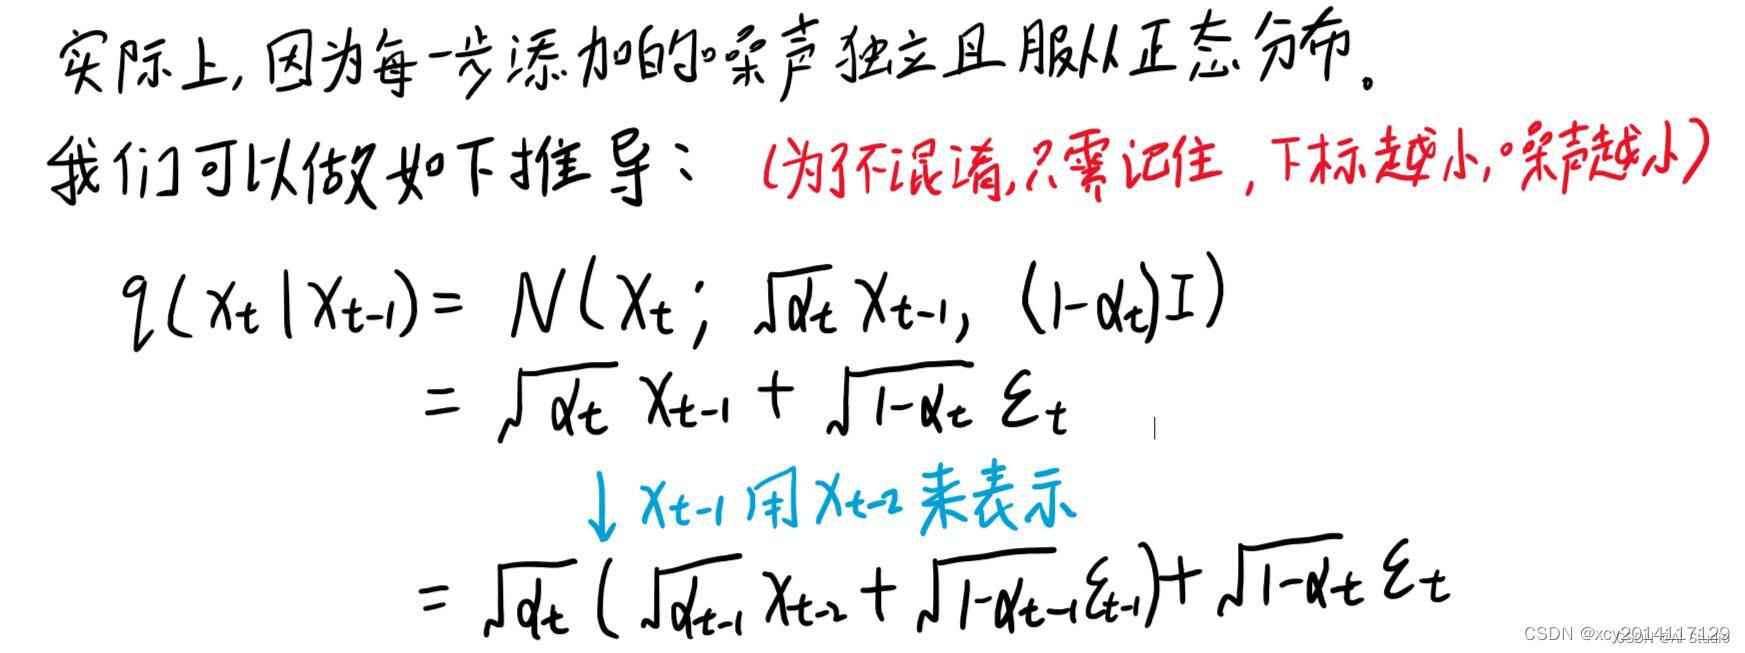 实际上,因为每一步添加的噪声独立且服从正态分布。
我们可以做如下推导: (为了不混淆,只需记住,下标越小,噪声越小)
q(x_t|x_{t-1}) = N(x_t; √α_t x_{t-1}, (1-α_t)I)
= √α_t x_{t-1} + √(1-α_t) ε_t
↓ x_{t-1}用x_{t-2}来表示
= √α_t (√α_{t-1} x_{t-2} + √(1-α_{t-1}) ε_{t-1}) + √(1-α_t) ε_t
CSDN @xcy2014117129